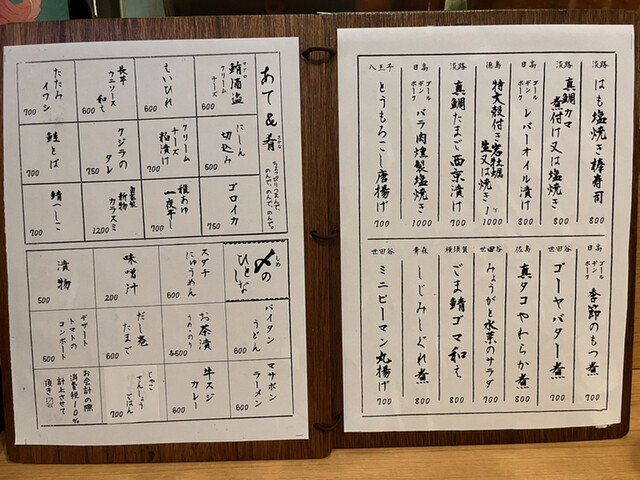 淡路 はも塩焼き棒寿司 800
淡路 真鯛カマ煮付け又は塩焼き 800
日高 ゴールデンポーク レバーオイル漬け 800
徳島 特大殻付き岩牡蠣 生又は焼き 1000
淡路 真鯛たまご西京漬け 700
日高 ゴールデンポーク バラ肉燻製塩焼き 1000
八王子 とうもろこし唐揚げ 700
日高 季節のもつ煮 700
世田谷 ゴーヤバター煮 700
佐島 真タコやわらか煮 800
世田谷 みょうがと水菜のサラダ 700
横須賀 ごま鯖ゴマ和え 800
青森 しじみしぐれ煮 800
世田谷 ミニピーマン丸揚げ 700
あて&肴
ちょっぴりつまんで、のんで、のんで、のんで。
鮪酒盗クリームチーズ 600
えいひれ 600
長芋ウニソース和え 600
たたみイワシ 700
にしん切込み 500
クリームチーズ粕漬け 700
クジラのタレ 750
鮭とば 700
ゴロイカ 750
一夜干し 700
自家製 カラスミ 1200
鯖へしこ 700
〆のひとしな
スダチにゅうめん 600
味噌汁 200
漬物 500
パイタンうどん 600
お茶漬 うめ・のり 各500
だし巻たまご 600
デザート トマトのコンポート 500
マサボンラーメン 600
牛スジカレー 600
じゃこ さんしょう ごはん 700
お会計の際消費税10%計上させて頂き〼